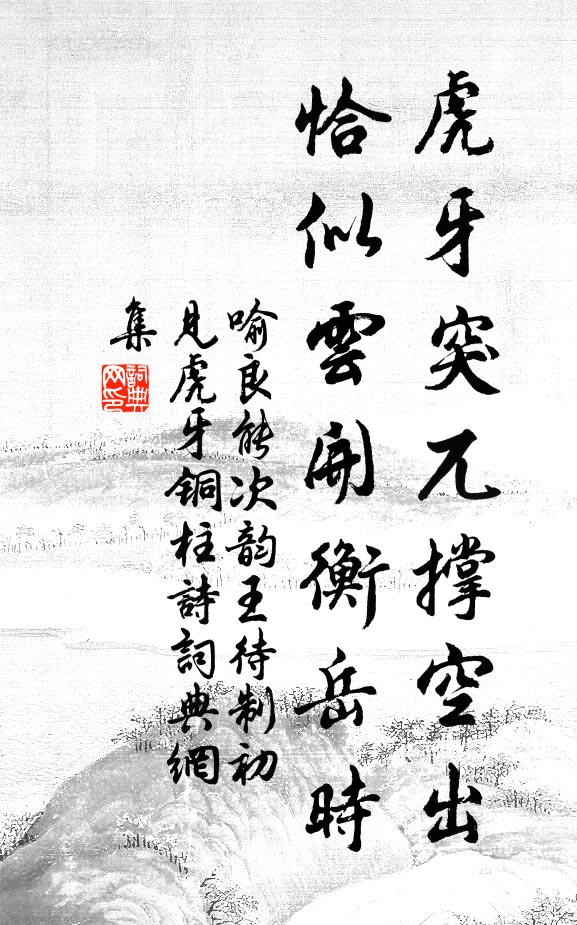 虎牙突兀撐空出
恰似雲開衡岳時
喻良能次韵王待制初
見虎牙銅柱詩詞典網
集
詞典
网印